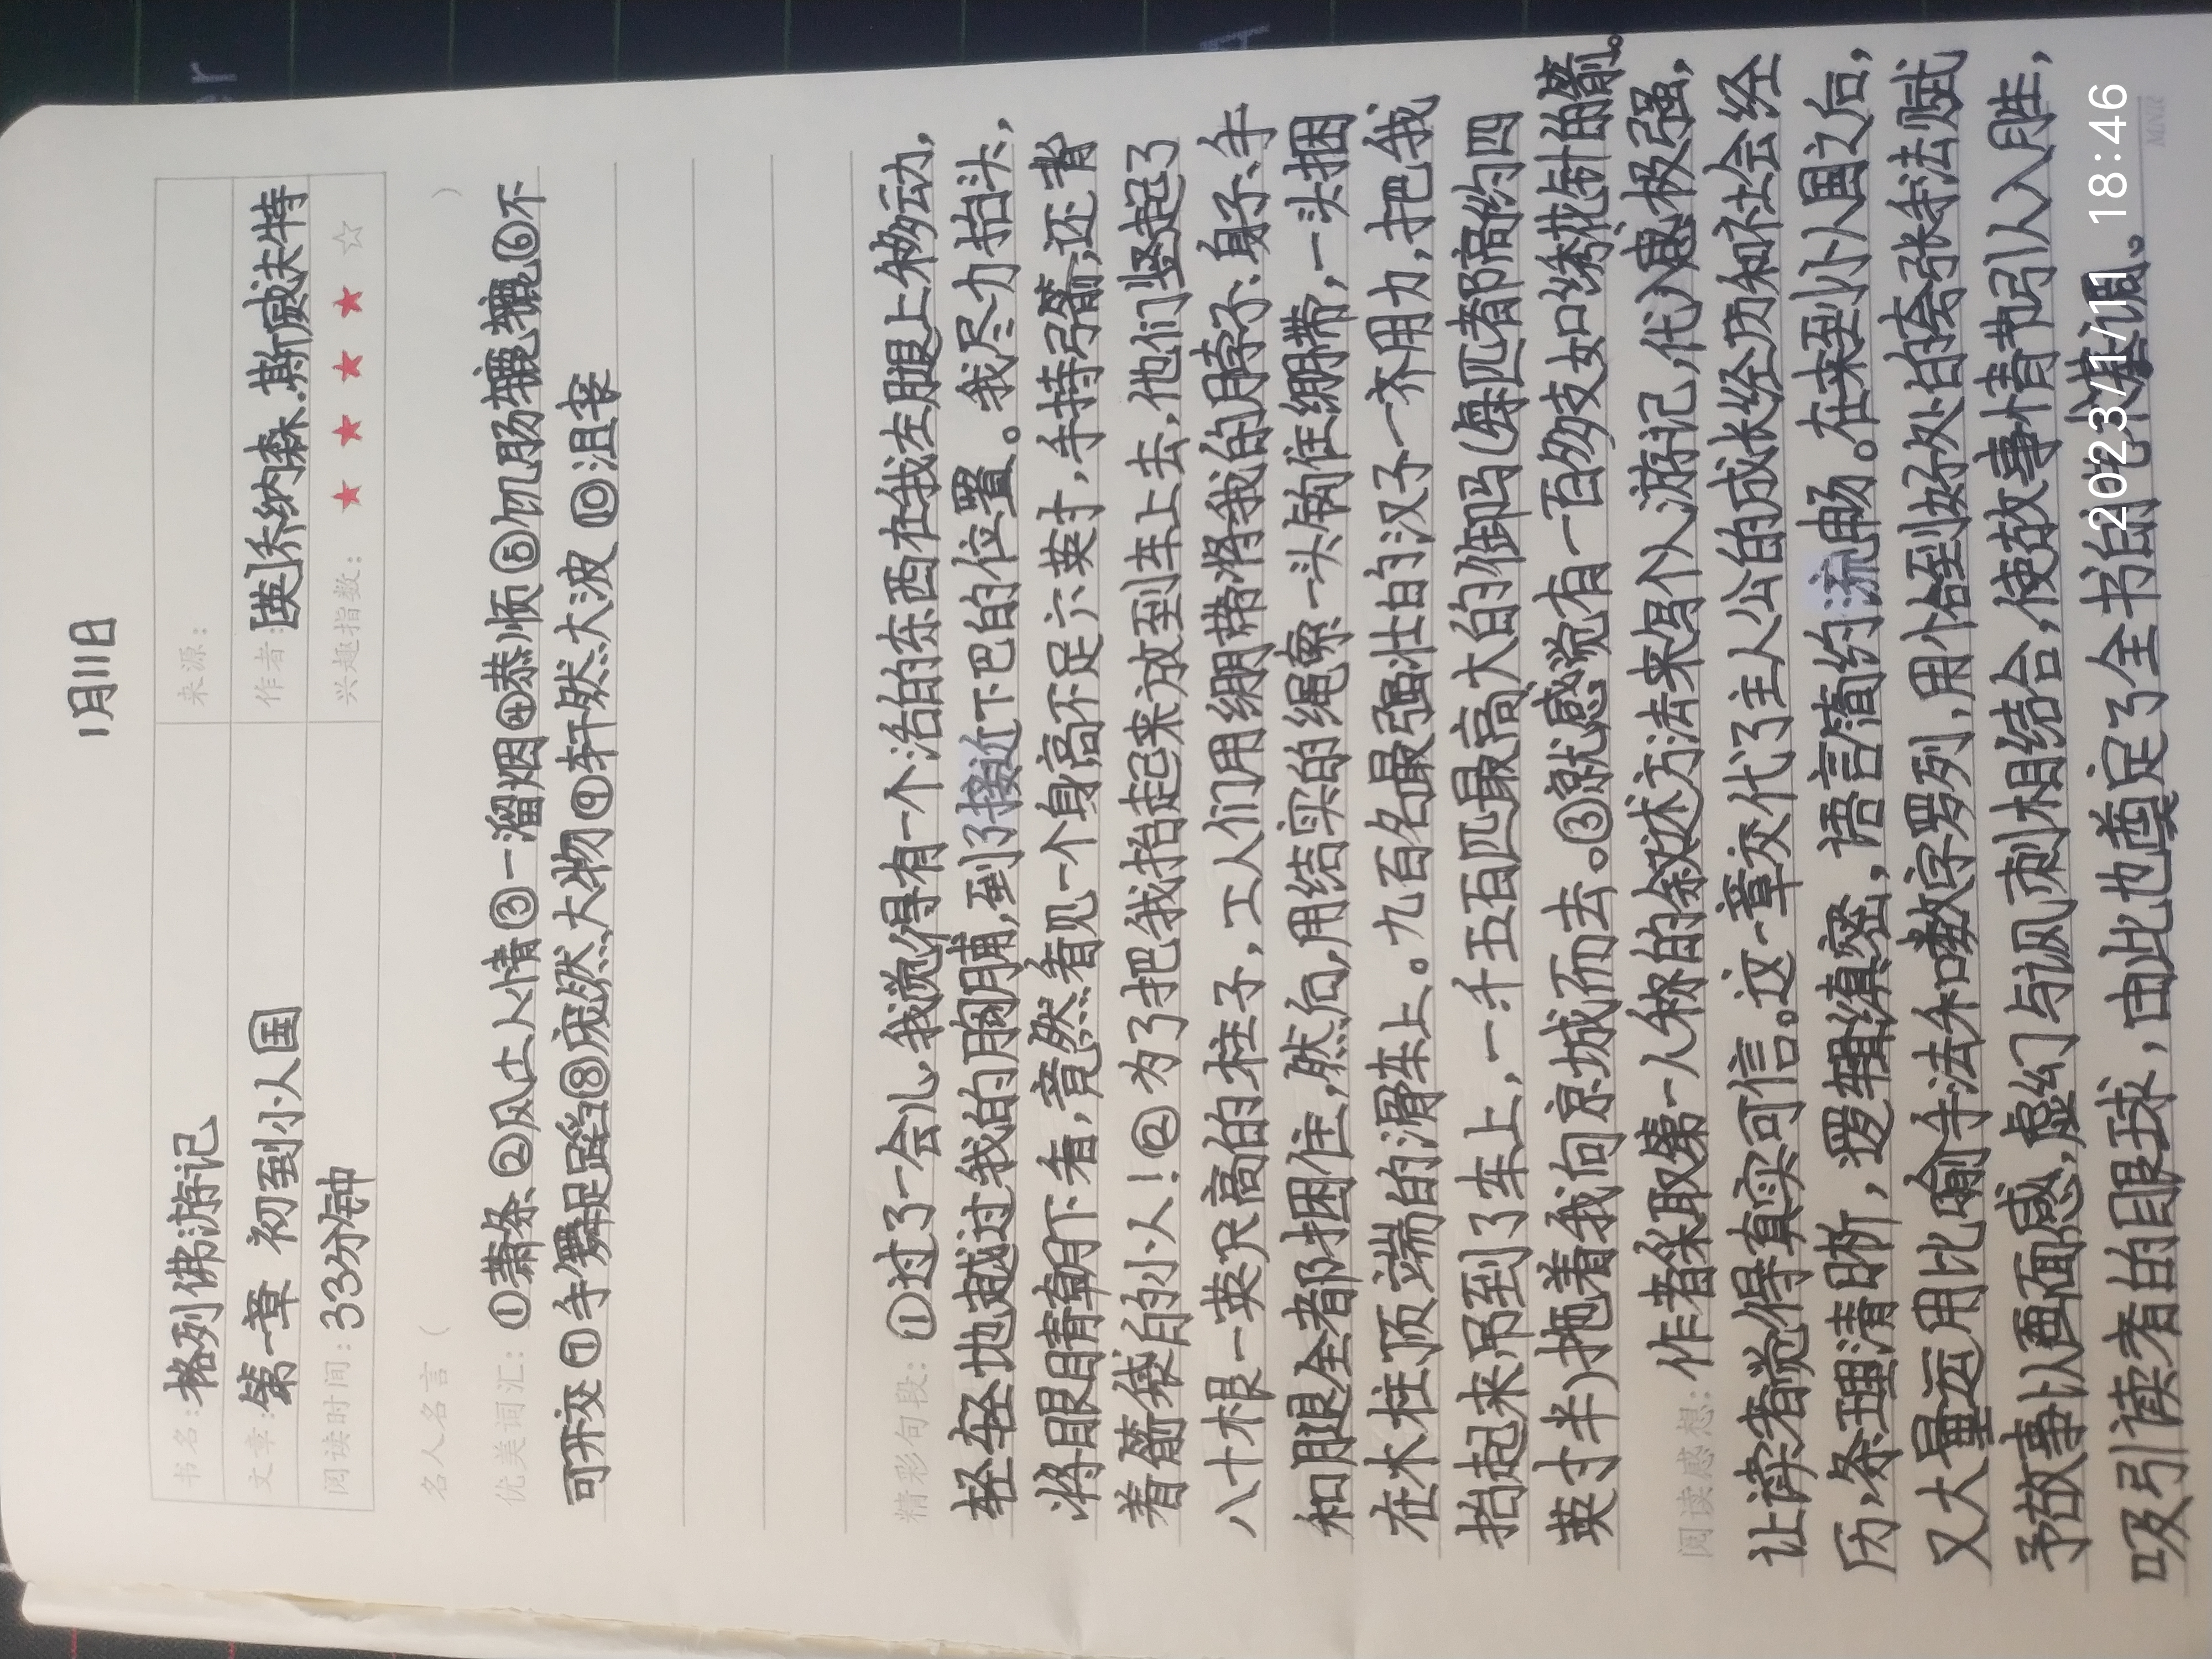 1月11日
书名：格列佛游记 来源：
文章：第一章 初到小人国 作者：[英]乔纳森.斯威夫特
阅读时间：33分钟 兴趣指数：★★★★☆
名人名言（ ）
优美词汇：①萧条②风土人情③一溜烟④恭顺⑤饥肠辘辘⑥不
可开交⑦手舞足蹈⑧庞然大物⑨轩然大波⑩沮丧
精彩句段：①过了一会儿,我觉得有一个活的东西在我左腿上移动,
轻轻地越过我的胸脯,到了接近下巴的位置。我尽力抬头,
将眼睛朝下看,竟然看见一个身高不足六英寸,手持弓箭,还背
着箭袋的小人!②为了把我抬起来放到车上去,他们竖起了
八十根一英尺高的柱子,工人们用绷带将我的脖子、身子、手
和腿全都捆住,然后,用结实的绳索一头钩住绷带,一头捆
在木柱顶端的滑车上。九百名最强壮的汉子一齐用力,把我
抬起来吊到了车上,一千五百匹最高大的御马(每匹都高约四
英寸半)拖着我向京城而去。③就感觉有一百多支如绣花针的箭。
阅读感想：作者采取第一人称的叙述方法来写个人游记,代入感极强,
让读者觉得真实可信。这一章交代了主人公的成长经历和社会经
历,条理清晰,逻辑缜密,语言简约流畅。在来到小人国之后,
又大量运用比喻手法和数字罗列,用恰到好处的夸张手法赋
予故事以画面感,虚幻与讽刺相结合,使故事情节引人入胜,
吸引读者的眼球,由此也奠定了全书的基调。
2023/1/11 18:46